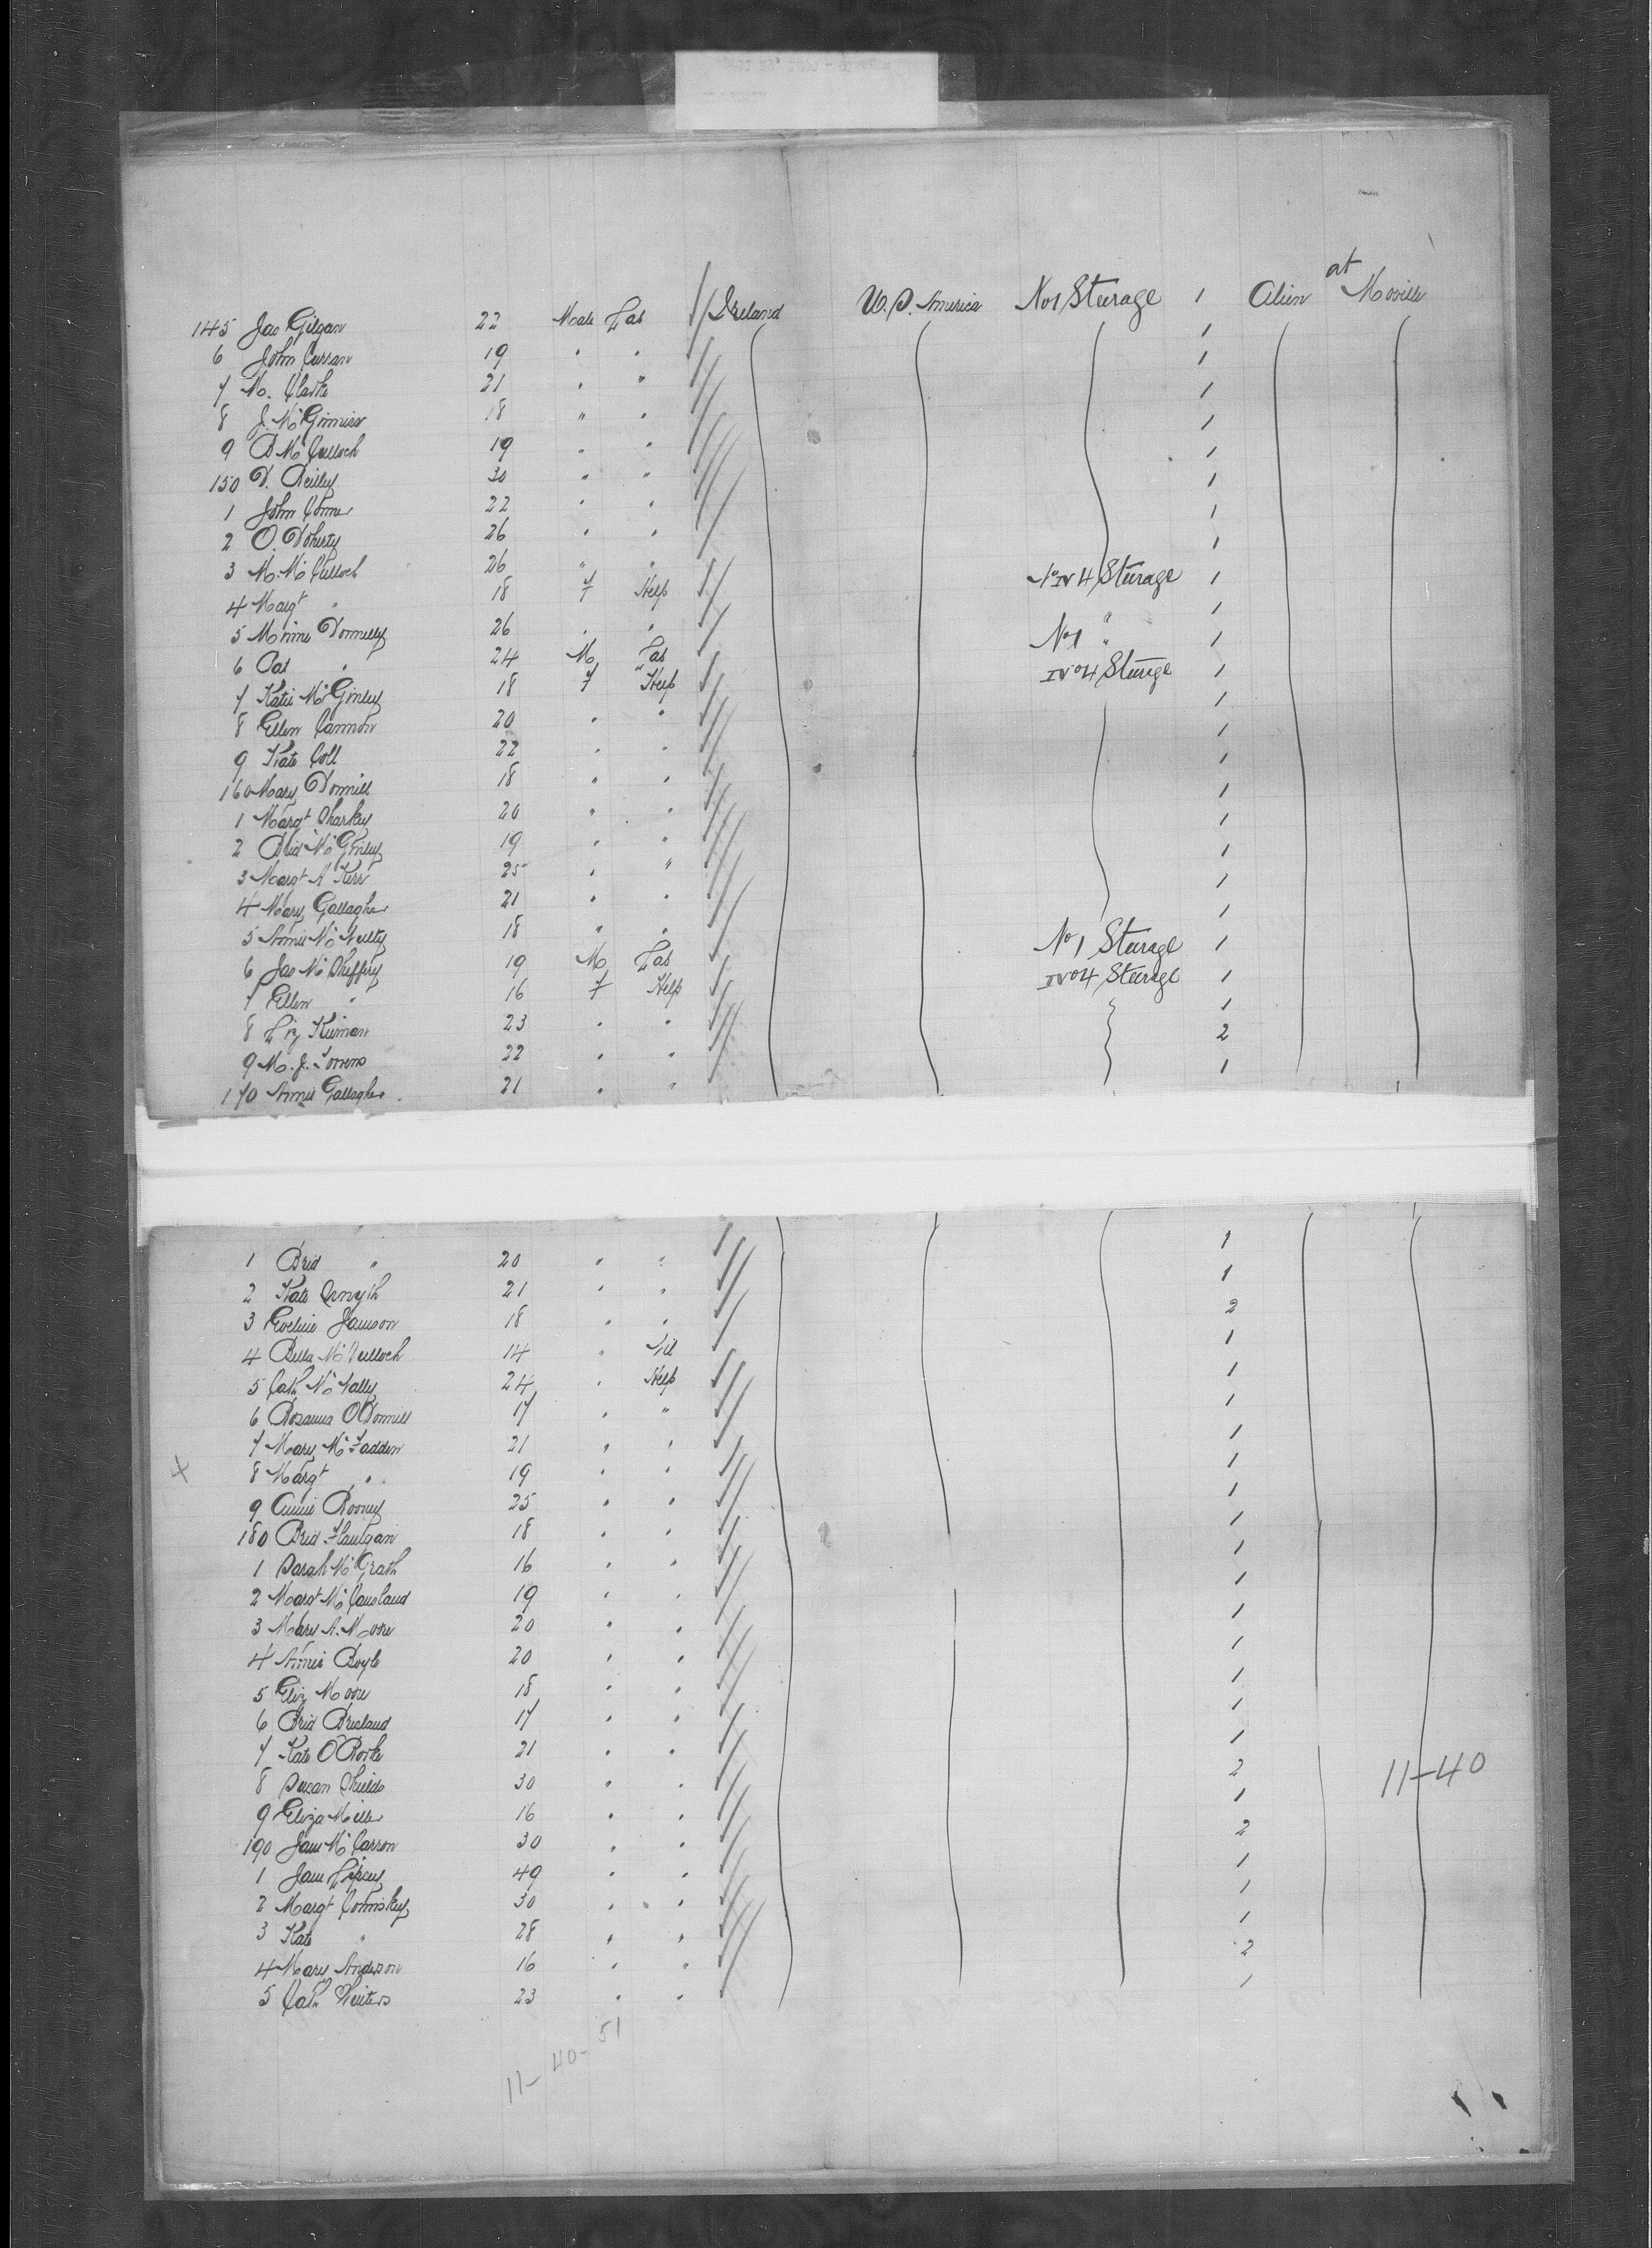 at
145 Jas Gilgan 22 Male Lab Ireland U.S. America No 1 Steerage 1 Alien Moville
6 John Curran 19 " " 1
7 M. Clarke 21 " " 1
8 J. McGinniss 18 " " 1
9 D McCulloch 19 " " 1
150 D. Reilly 30 " " 1
1 John Conner 22 " " 1
2 O. Doherty 26 " " 1
3 M. McCulloch 26 " " 1
4 Margt " 18 F Help No 4 Steerage 1
5 Minnie Donnelly 26 " " " 1
6 Pat " 24 M Lab No 1 " 1
7 Katie McGinley 18 F Help No 4 Steerage 1
8 Ellen Cannon 20 " " 1
9 Kate Coll 22 " " 1
160 Mary Donnell 18 " " 1
1 Margt Sharkey 20 " " 1
2 Brid McGinley 19 " " 1
3 Margt A Kerr 25 " " 1
4 Mary Gallagher 21 " " 1
5 Annie McNeilly 18 " " 1
6 Jas McSheffrey 19 M Lab No 1 Steerage 1
7 Ellen " 16 F Help No 4 Steerage 1
8 Liz Kiernan 23 " " 1
9 M. J. Torrens 22 " " 2
170 Annie Gallagher 21 " " 1
1 Brid " 20 " " 1
2 Kate Smyth 21 " " 1
3 Eveline Jamson 18 " " 2
4 Bella McCulloch 14 " 1
5 Cath McNally 24 " Help 1
6 Rosanna O'Donnell 17 " " 1
7 Mary McFadden 21 " " 1
x 8 Margt " 19 " " 1
9 Annie Rooney 25 " " 1
180 Brid Flanigan 18 " " 1
1 Sarah McGrath 16 " " 1
2 Margt McCausland 19 " " 1
3 Mary A. Moore 20 " " 1
4 Annie Boyle 20 " " 1
5 Eliz Moore 18 " " 1
6 Brid Bresland 17 " " 1
7 Kate O'Rorke 21 " " 1
8 Susan Shields 30 " " 2 11-40
9 Eliza Miller 16 " " 1
190 Jane McCarron 30 " " 2
1 Jane 49 " " 1
2 Margt Cominskey 30 " " 1
3 Kate " 28 " " 1
4 Mary Anderson 16 " " 2
5 Cath Winters 23 " " 1
11-40-51